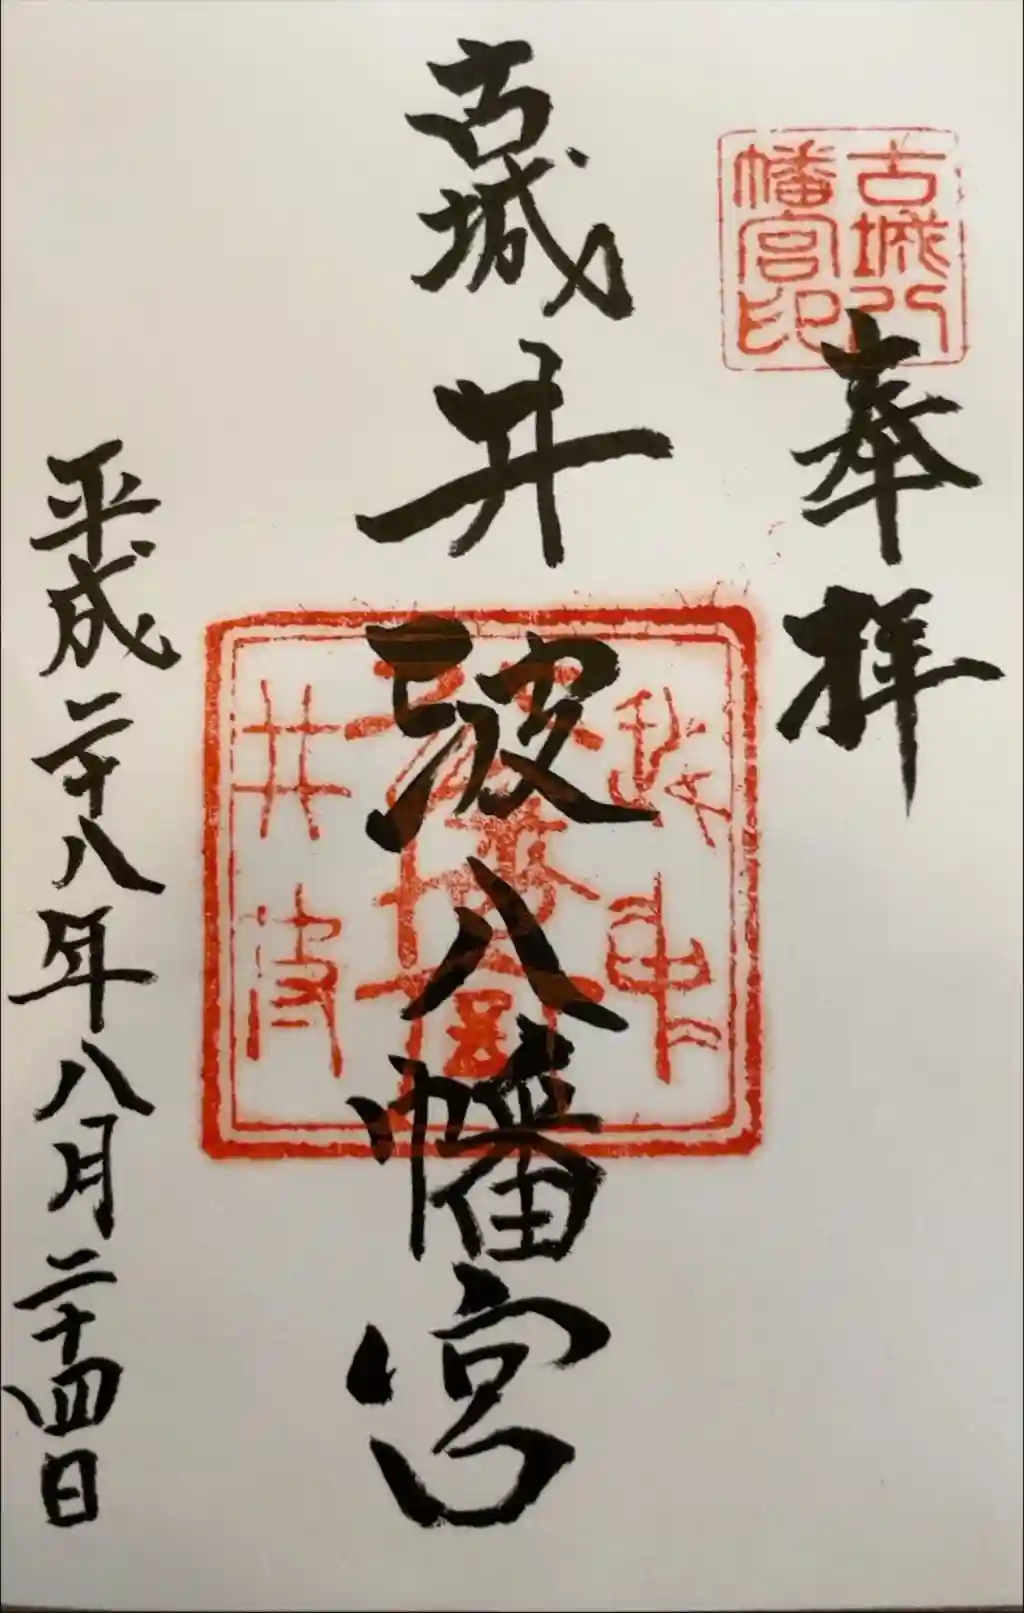 古城八
幡宮印
奉拝
古城
井波八幡宮
越中
井波
平成二十八年八月二十四日